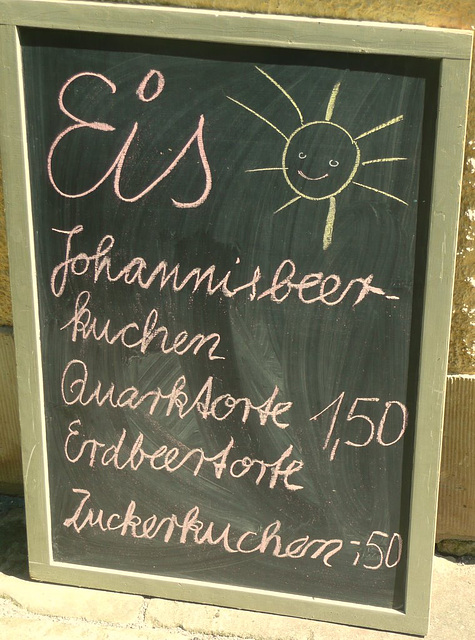 Eis
Johannisbeer-
kuchen
Quarktorte 1,50
Erdbeertorte
Zuckerkuchen -;50